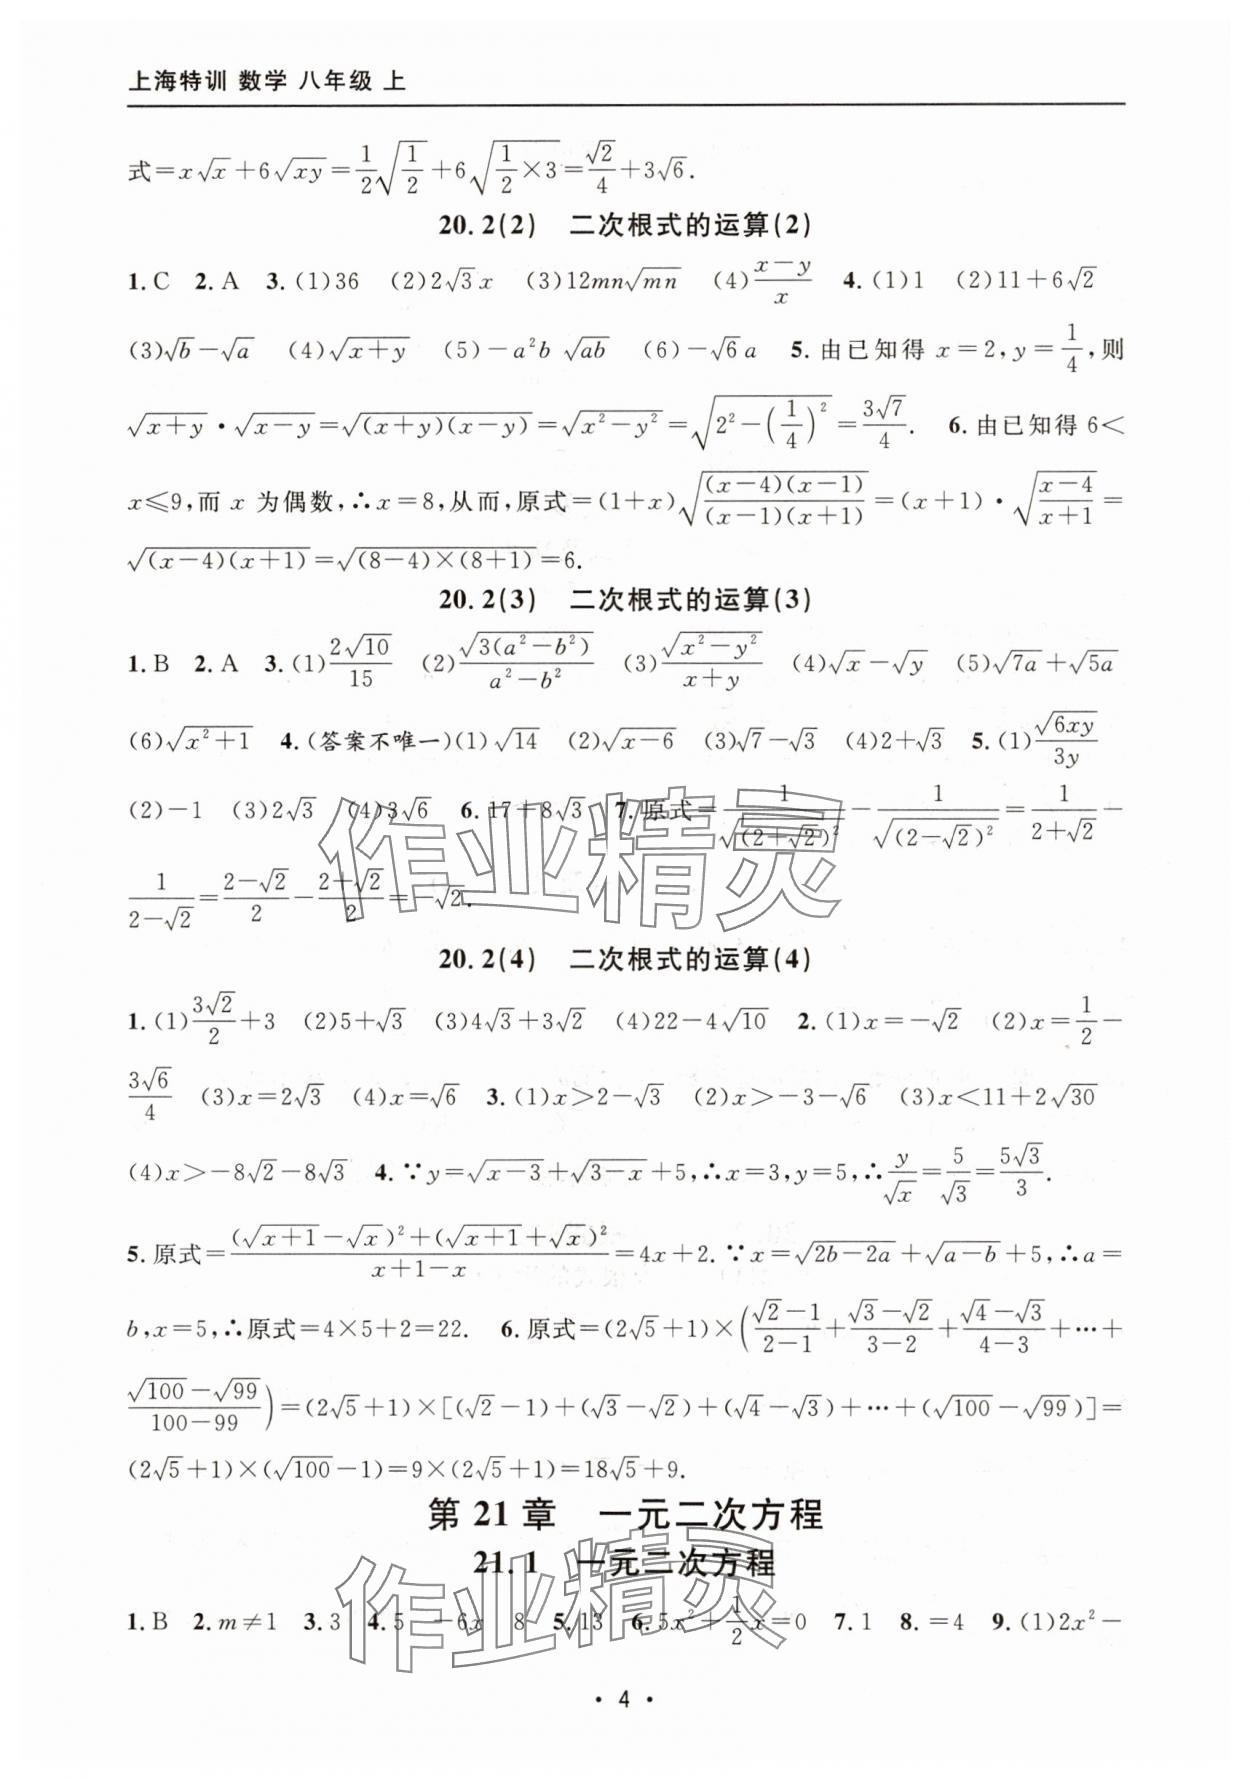 上海特训 数学 八年级 上
式=x√x+6√(xy)=1/2√(1/2)+6√(1/2×3)=√2/4+3√6.
20.2(2) 二次根式的运算(2)
1.C 2.A 3.(1)36 (2)2√3x (3)12mn√(mn) (4)(x-y)/x 4.(1)1 (2)11+6√2
(3)√b-√a (4)√(x+y) (5)-a²b√(ab) (6)-√6a 5.由已知得x=2,y=1/4,则
√(x+y)·√(x-y)=√((x+y)(x-y))=√(x²-y²)=√(2²-(1/4)²)=3√7/4. 6.由已知得6<
x≤9,而x为偶数,∴x=8,从而,原式=(1+x)√((x-4)(x-1)/(x-1)(x+1))=(x+1)·√((x-4)/(x+1))=
√((x-4)(x+1))=√((8-4)×(8+1))=6.
20.2(3) 二次根式的运算(3)
1.B 2.A 3.(1)2√10/15 (2)√(3(a²-b²))/(a²-b²) (3)√(x²-y²)/(x+y) (4)√x-√y (5)√(7a)+√(5a)
(6)√(x²+1) 4.(答案不唯一)(1)√14 (2)√(x-6) (3)√7-√3 (4)2+√3 5.(1)√(6xy)/3y
(2)-1 (3)2√3 (4)3√6 6.17+8√3 7.原式=1/√((2+√2)²)-1/√((2-√2)²)=1/(2+√2)-
1/(2-√2)=(2-√2)/2-(2+√2)/2=-√2.
20.2(4) 二次根式的运算(4)
1.(1)3√2/2+3 (2)5+√3 (3)4√3+3√2 (4)22-4√10 2.(1)x=-√2 (2)x=1/2-
3√6/4 (3)x=2√3 (4)x=√6 3.(1)x>2-√3 (2)x>-3-√6 (3)x<11+2√30
(4)x>-8√2-8√3 4.∵y=√(x-3)+√(3-x)+5,∴x=3,y=5,∴y/√x=5/√3=5√3/3.
5.原式=((√(x+1)-√x)²+(√(x+1)+√x)²)/(x+1-x)=4x+2.∵x=√(2b-2a)+√(a-b)+5,∴a=
b,x=5,∴原式=4×5+2=22. 6.原式=(2√5+1)×((√2-1)/(2-1)+(√3-√2)/(3-2)+(√4-√3)/(4-3)+…+
(√100-√99)/(100-99))=(2√5+1)×[(√2-1)+(√3-√2)+(√4-√3)+…+(√100-√99)]=
(2√5+1)×(√100-1)=9×(2√5+1)=18√5+9.
第21章 一元二次方程
21.1 一元二次方程
1.B 2.m≠1 3.3 4.5 -6x 8 5.13 6.5x²+1/2x=0 7.1 8.=4 9.(1)2x²-
·4·
作业精灵
作业精灵